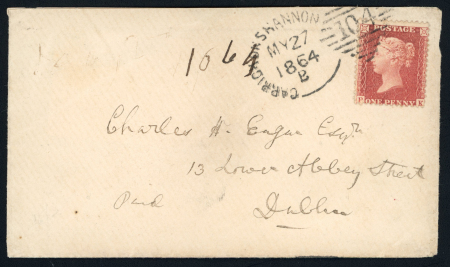 CARRICK ON SHANNON
MY 27
1864
B
104
POSTAGE
ONE PENNY
1864
Charles H. Eagar Esqr
13 Lower Abbey Street
Paid
Dublin